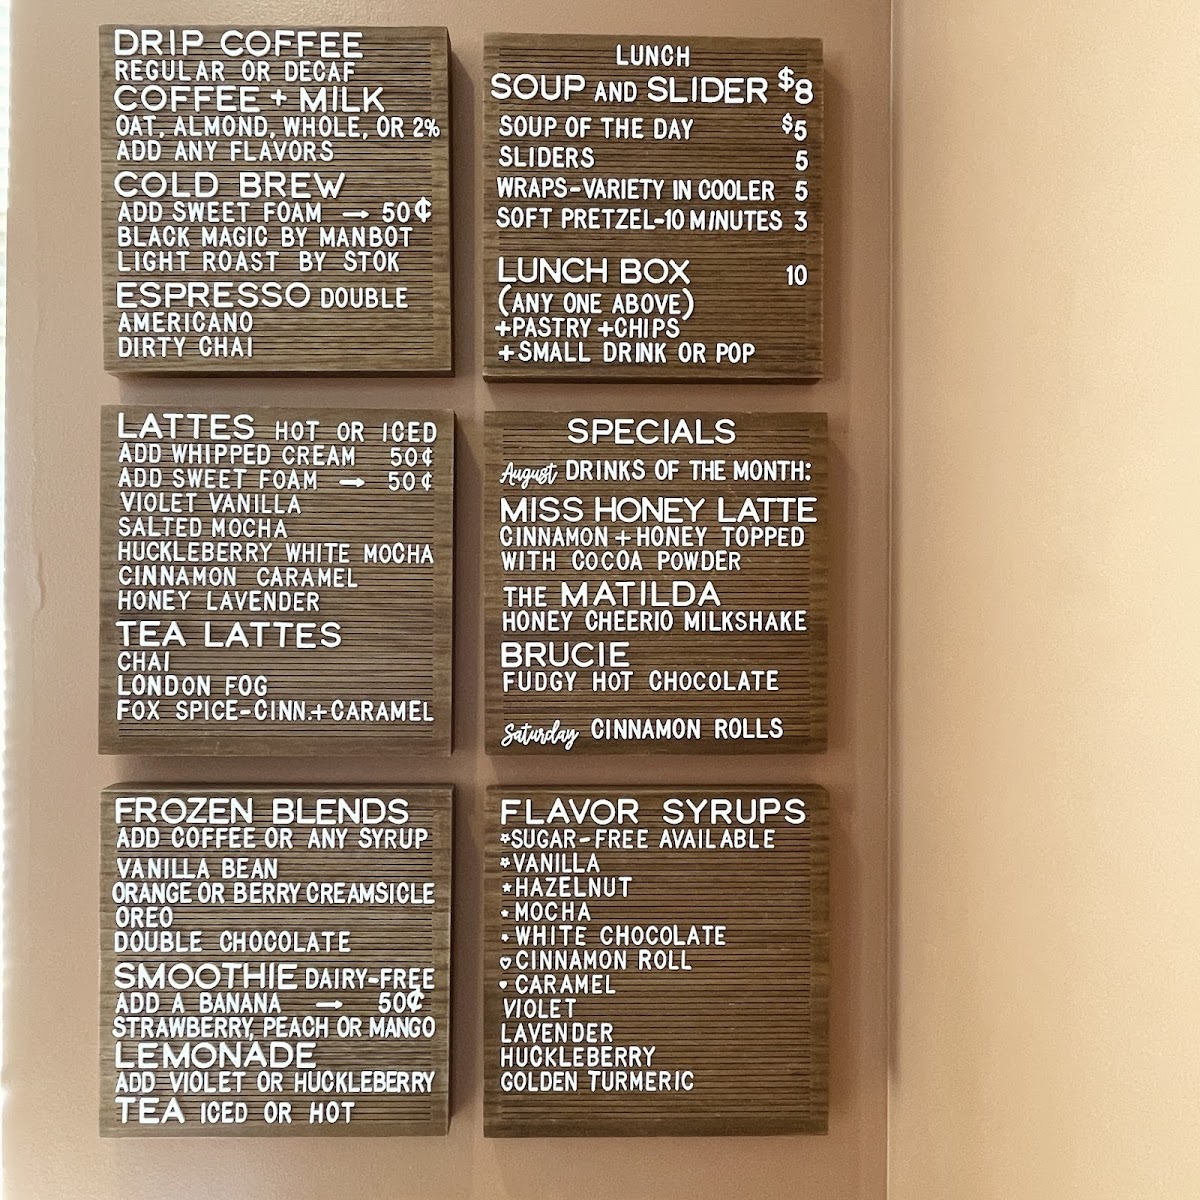 DRIP COFFEE
REGULAR OR DECAF
COFFEE + MILK
OAT, ALMOND, WHOLE, OR 2%
ADD ANY FLAVORS
COLD BREW
ADD SWEET FOAM → 50¢
BLACK MAGIC BY MANBOT
LIGHT ROAST BY STOK
ESPRESSO DOUBLE
AMERICANO
DIRTY CHAI
LUNCH
SOUP AND SLIDER $8
SOUP OF THE DAY $5
SLIDERS 5
WRAPS-VARIETY IN COOLER 5
SOFT PRETZEL-10 MINUTES 3
LUNCH BOX 10
(ANY ONE ABOVE)
+PASTRY +CHIPS
+SMALL DRINK OR POP
LATTES HOT OR ICED
ADD WHIPPED CREAM 50¢
ADD SWEET FOAM → 50¢
VIOLET VANILLA
SALTED MOCHA
HUCKLEBERRY WHITE MOCHA
CINNAMON CARAMEL
HONEY LAVENDER
TEA LATTES
CHAI
LONDON FOG
FOX SPICE-CINN.+CARAMEL
SPECIALS
August DRINKS OF THE MONTH:
MISS HONEY LATTE
CINNAMON + HONEY TOPPED
WITH COCOA POWDER
THE MATILDA
HONEY CHEERIO MILKSHAKE
BRUCIE
FUDGY HOT CHOCOLATE
Saturday CINNAMON ROLLS
FROZEN BLENDS
ADD COFFEE OR ANY SYRUP
VANILLA BEAN
ORANGE OR BERRY CREAMSICLE
OREO
DOUBLE CHOCOLATE
SMOOTHIE DAIRY-FREE
ADD A BANANA → 50¢
STRAWBERRY, PEACH OR MANGO
LEMONADE
ADD VIOLET OR HUCKLEBERRY
TEA ICED OR HOT
FLAVOR SYRUPS
*SUGAR-FREE AVAILABLE
*VANILLA
*HAZELNUT
*MOCHA
*WHITE CHOCOLATE
♡CINNAMON ROLL
♥CARAMEL
VIOLET
LAVENDER
HUCKLEBERRY
GOLDEN TURMERIC